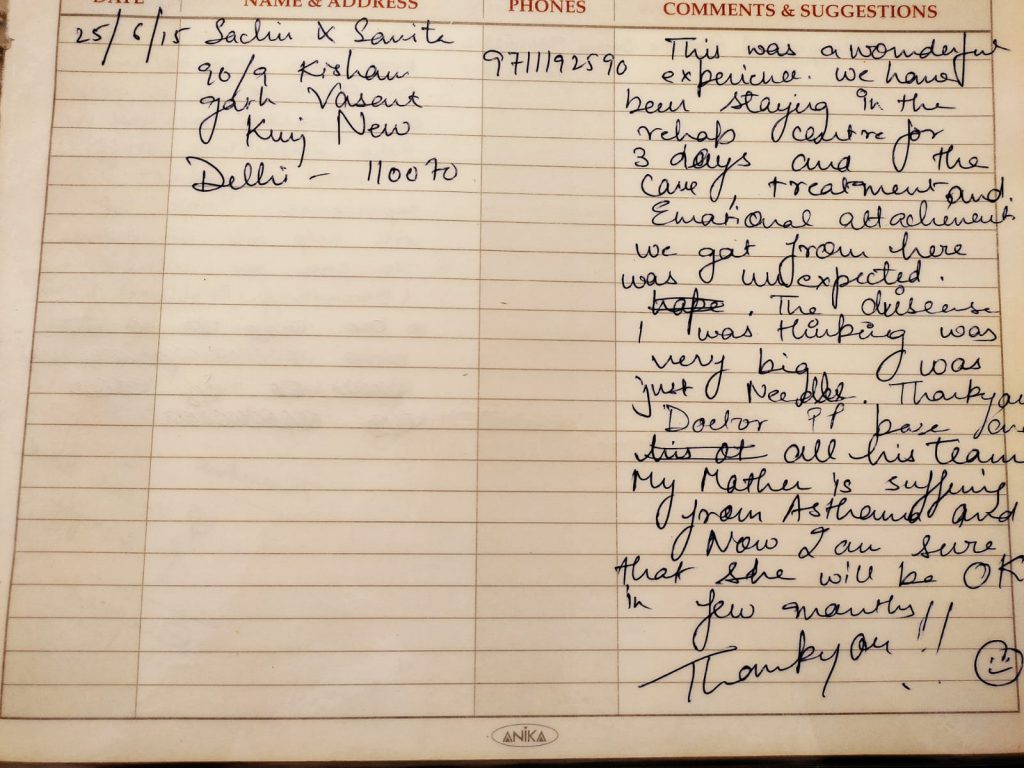 DATE NAME & ADDRESS PHONES COMMENTS & SUGGESTIONS
25/6/15 Sachin & Savita
90/9 Kishan
garh Vasant
Kunj New
Delhi - 110070
9711192590
This was a wonderful
experience. We have
been staying in the
rehab centre for
3 days and the
care, treatment and
Emotional attachment
we got from here
was unexpected.
hope. The disease
I was thinking was
very big was
just Needles. Thankyou
Doctor PP bose and
all his team
My Mother is suffering
from Asthama and
Now I am sure
that she will be OK
in few months!!
Thankyou
ANIKA